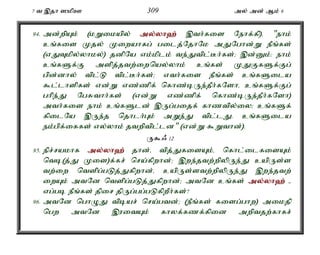 7 வ இதா ஸமிஃஊ 309 அல் அன் ஆம் 6
94. அன்றியும் (மறுமையில் அல்லாஹ் இவர்களை நோக்கி), "நாம்
உங்களை முதல் முறையாகப் படைத்தோமே அதுபோன்று நீங்கள்
(எதுவுமில்லாமல்) தனியே எம்மிடம் வந்துவிட்டீர்கள்; இன்னும்: நாம்
உங்களுக்கு அளித்தவற்றையெல்லாம் உங்கள் முதுகுகளுக்குப்
பின்னால் விட்டு விட்டீர்கள்; எவர்களை நீங்கள் உங்களுடைய
கூட்டாளிகள் என்று எண்ணிக் கொண்டிருந்தீர்களோ, உங்களுக்குப்
பரிந்து பேசுவார்கள் (என்று எண்ணிக் கொண்டிருந்தீர்களோ)
அவர்களை நாம் உங்களுடன் இருப்பதைக் காணவில்லை; உங்களுக்
கிடையே இருந்த தொடர்பும் அறுந்து விட்டது. உங்களுடைய
நம்பிக்கைகள் எல்லாம் தவறிவிட்டன" (என்று கூறுவான்).
ருகூஃ 12
95. நிச்சயமாக அல்லாஹ் தான், வித்துகளையும், கொட்டைகளையும்
வெடித்து முளைக்கச் செய்கிறான்; இறந்தவற்றிலிருந்து உயிருள்ள
வற்றை வெளிப்படுத்துகிறான்; உயிருள்ளவற்றிலிருந்து இறந்தவற்
றையும் அவனே வெளிப்படுத்துகிறான்; அவனே உங்கள் அல்லாஹ் -
எப்படி நீங்கள் திசை திருப்பப்படுகிறீர்கள்?
96. அவனே பொழுது விடியச் செய்பவன்; (நீங்கள் களைப்பாறி) அமைதி
பெற அவனே இரவையும் காலக்கணக்கினை அறிவதற்காகச்